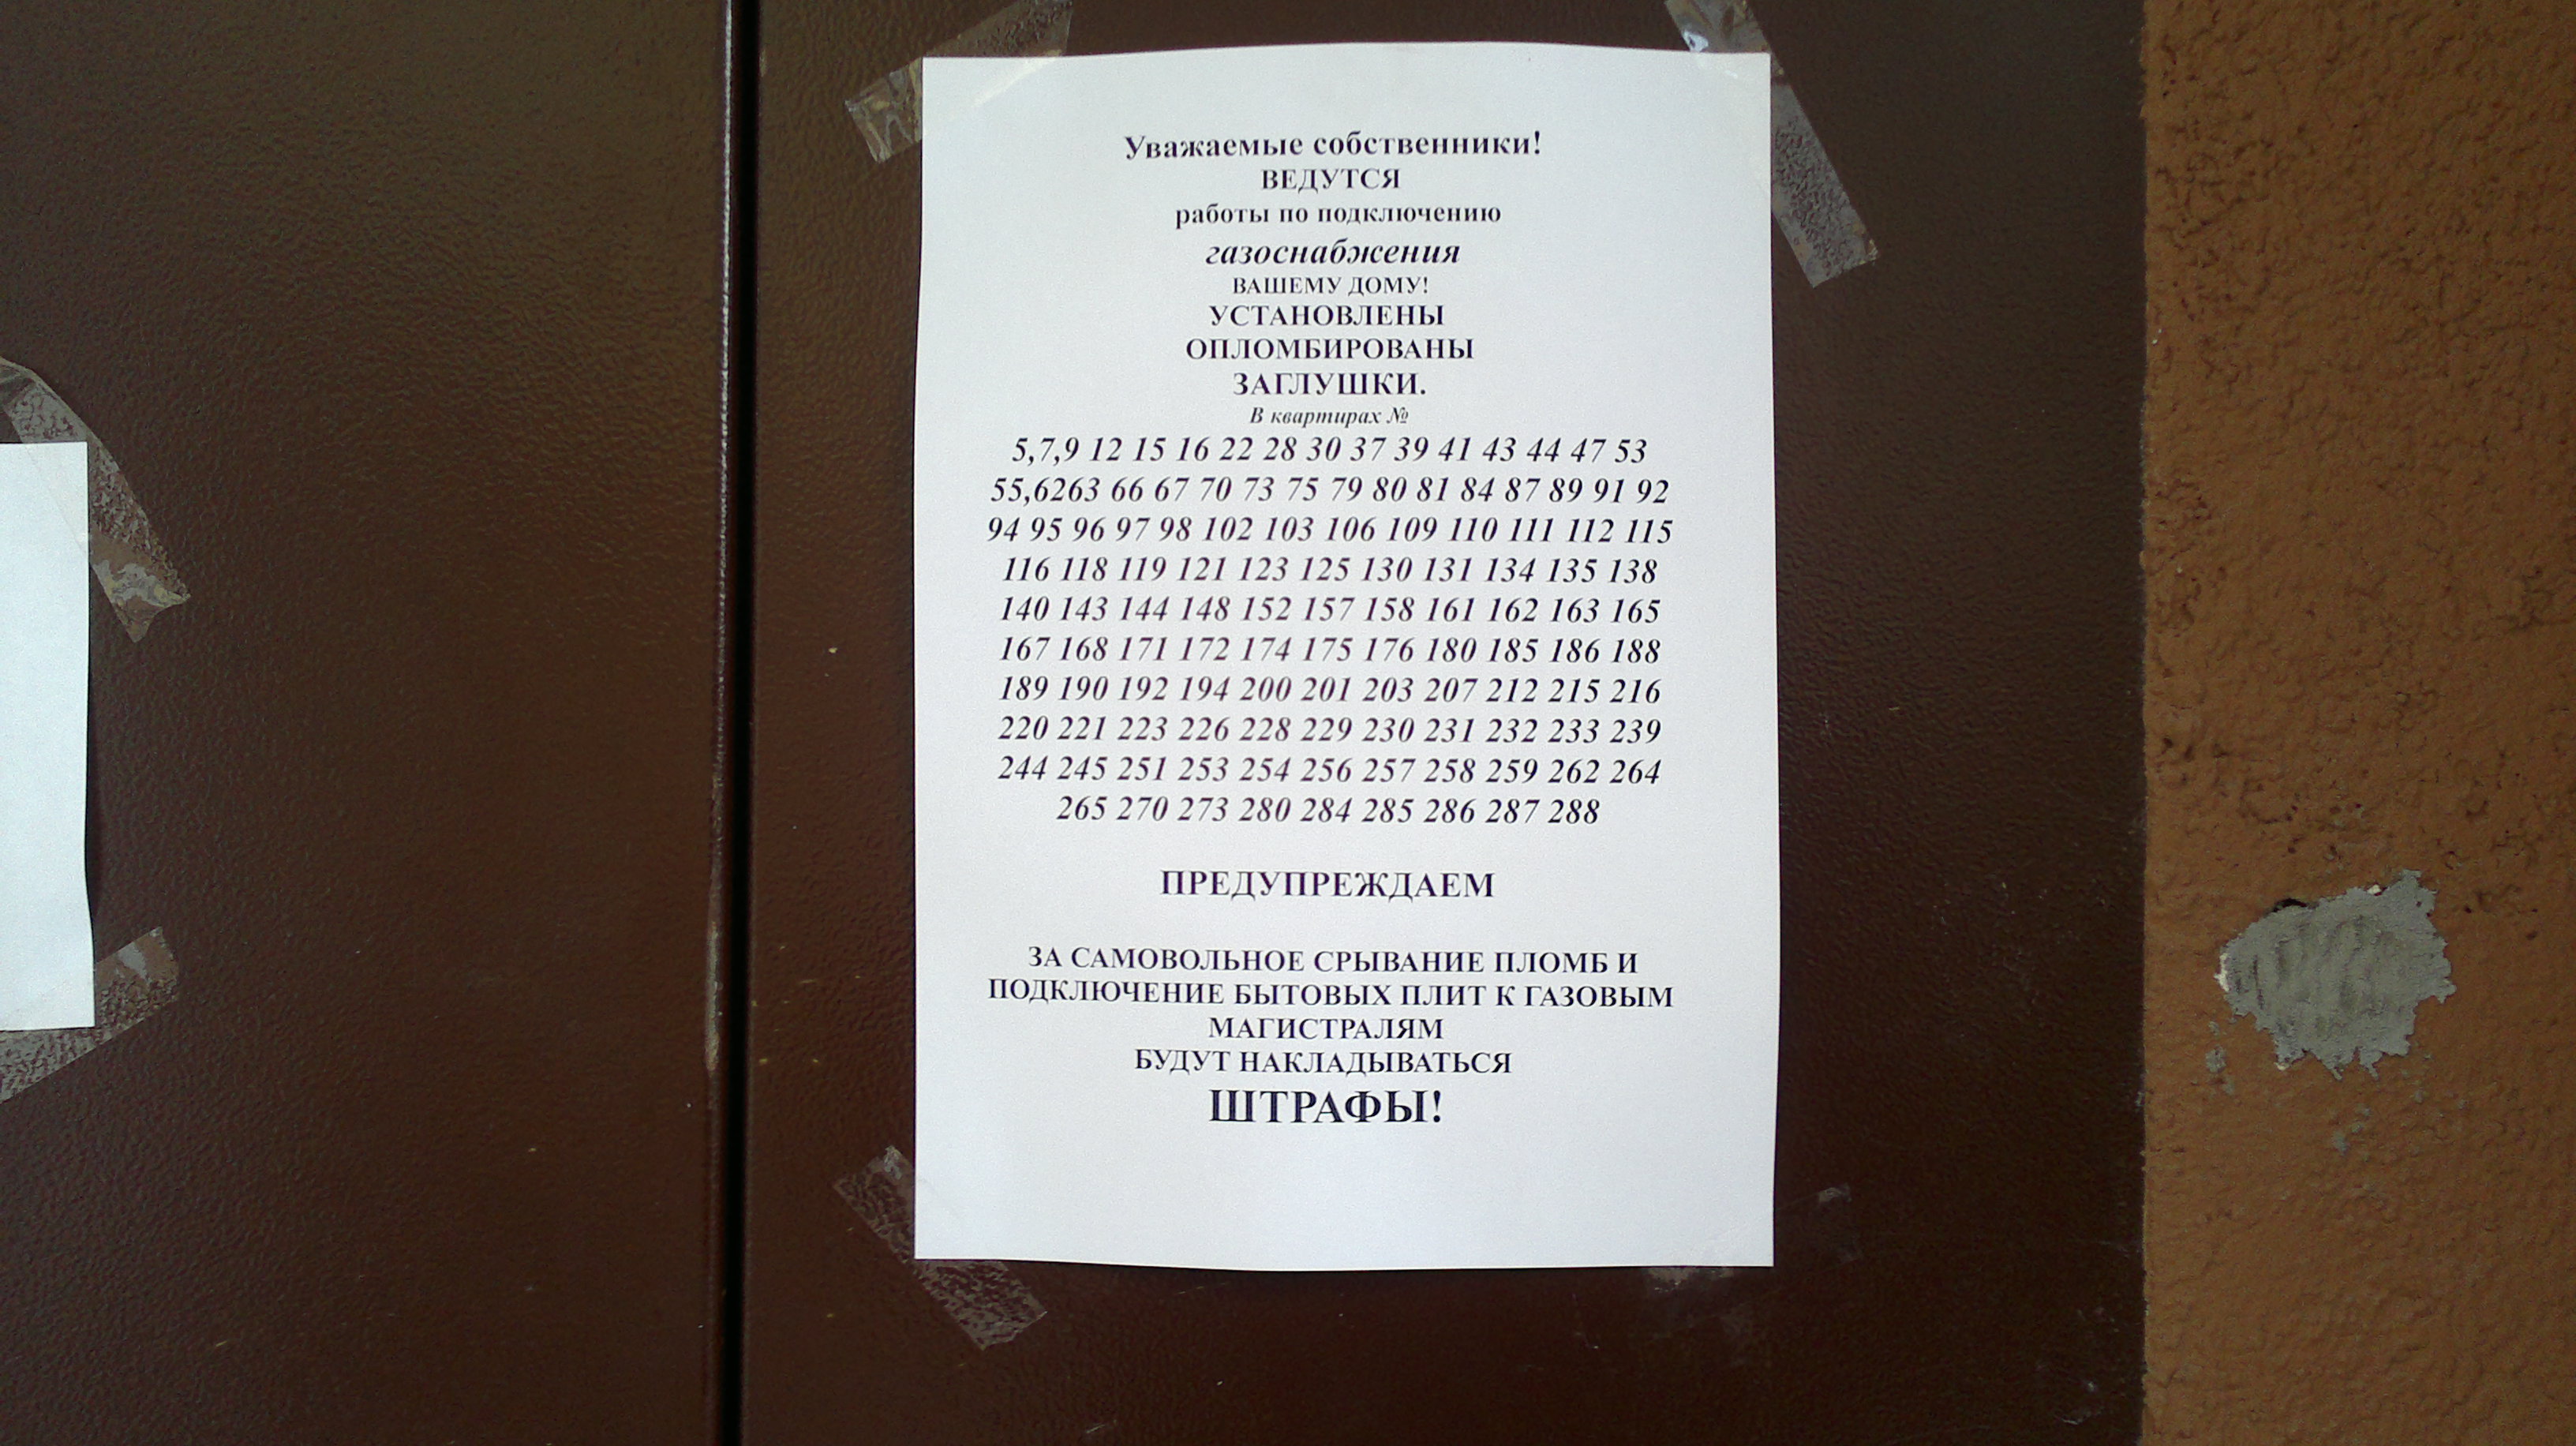 Уважаемые собственники!
ВЕДУТСЯ
работы по подключению
газоснабжения
ВАШЕМУ ДОМУ!
УСТАНОВЛЕНЫ
ОПЛОМБИРОВАНЫ
ЗАГЛУШКИ.
В квартирах №
5,7,9 12 15 16 22 28 30 37 39 41 43 44 47 53
55,6263 66 67 70 73 75 79 80 81 84 87 89 91 92
94 95 96 97 98 102 103 106 109 110 111 112 115
116 118 119 121 123 125 130 131 134 135 138
140 143 144 148 152 157 158 161 162 163 165
167 168 171 172 174 175 176 180 185 186 188
189 190 192 194 200 201 203 207 212 215 216
220 221 223 226 228 229 230 231 232 233 239
244 245 251 253 254 256 257 258 259 262 264
265 270 273 280 284 285 286 287 288
ПРЕДУПРЕЖДАЕМ
ЗА САМОВОЛЬНОЕ СРЫВАНИЕ ПЛОМБ И
ПОДКЛЮЧЕНИЕ БЫТОВЫХ ПЛИТ К ГАЗОВЫМ
МАГИСТРАЛЯМ
БУДУТ НАКЛАДЫВАТЬСЯ
ШТРАФЫ!